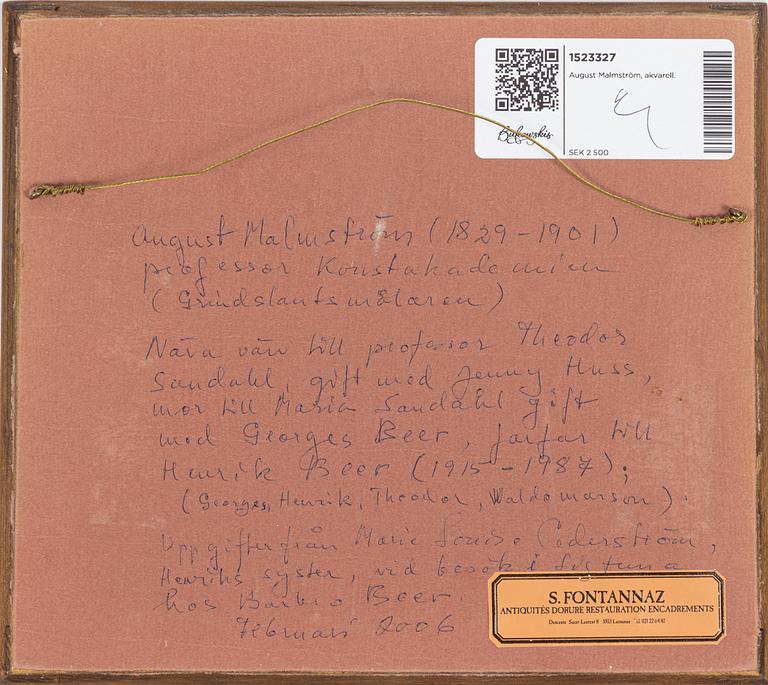 1523327
August Malmström, akvarell.
Bukowskis
SEK 2 500
August Malmström (1829-1901)
professor Konstakademien
(Grindslantsmålaren)
Nära vän till professor Theodor
Sandahl, gift med Jenny Huss,
mor till Maria Sandahl gift
med Georges Beer, farfar till
Henrik Beer (1915-1987);
(Georges, Henrik, Theodor, Waldemarson).
Uppgifter från Marie Louise Cederström,
Henriks syster, vid besök i
hos Beer.
Februari 2006
S. FONTANNAZ
ANTIQUITÉS DORURE RESTAURATION ENCADREMENTS
Descente Saint-Laurent 8 1003 Lausanne Tél. 021 22 64 82